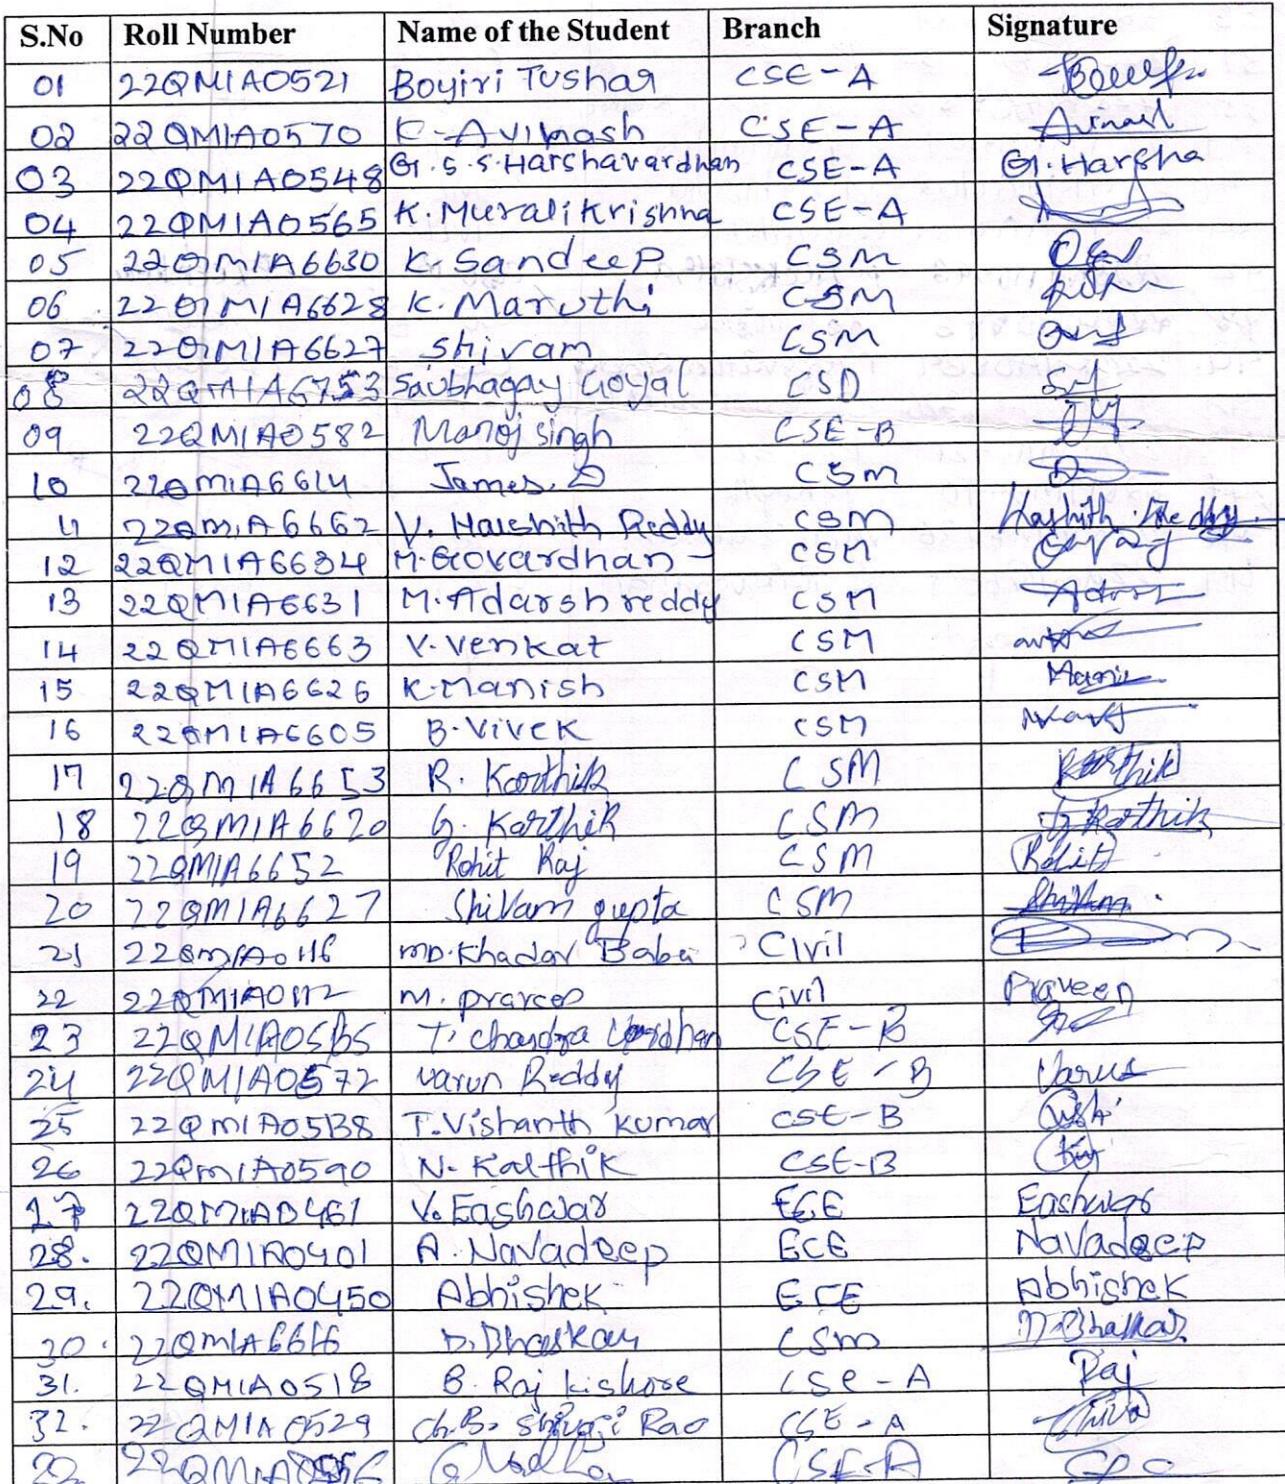 S.No Roll Number Name of the Student Branch Signature
01 22QM1A0521 Boyiri Tushar CSE-A
02 22QM1A0570 K-Avinash CSE-A Avinash
03 22QM1A0548 G.S.S.Harshavardhan CSE-A G.Harsha
04 22QM1A0565 K.Muralikrishna CSE-A
05 22QM1A6630 K.Sandeep CSM
06 22QM1A6628 K.Maruthi CSM
07 22QM1A6627 Shivam CSM
08 22QM1A6753 Saubhagay Goyal CSD
09 22QM1A0582 Manoj singh CSE-B
10 22QM1A6614 James.D CSM
11 22QM1A6662 V. Harshith Reddy CSM Harshith Reddy
12 22QM1A6634 M.Govardhan CSM
13 22QM1A6631 M.Adarshreddy CSM
14 22QM1A6663 V.Venkat CSM
15 22QM1A6626 K.Manish CSM
16 22QM1A6605 B.Vivek CSM
17 22QM1A6653 R. Karthik CSM Karthik
18 22QM1A6620 G. Karthik CSM G Karthik
19 22QM1A6652 Rohit Raj CSM Rohit
20 22QM1A6627 Shivam gupta CSM Shivam
21 22QM1A0116 MD.Khadar Baba Civil
22 22QM1A0112 M. praveen Civil Praveen
23 22QM1A05B5 T. chandra Vardhan CSE-B
24 22QM1A0572 Varun Reddy CSE-B Varun
25 22QM1A05B8 T.Vishanth kumar CSE-B
26 22QM1A0590 N. Karthik CSE-B
27 22QM1A0461 V. Eashwar ECE Eashwar
28. 22QM1A0401 A. Navadeep ECE Navadeep
29. 22QM1A0450 Abhishek ECE Abhishek
30. 22QM1A6616 D. Bhaskar CSM D. Bhaskar
31. 22QM1A0518 B. Raj kishore CSE-A Raj
32. 22QM1A0529 Ch.B. Shivaji Rao CSE-A Shiva
CSE-A